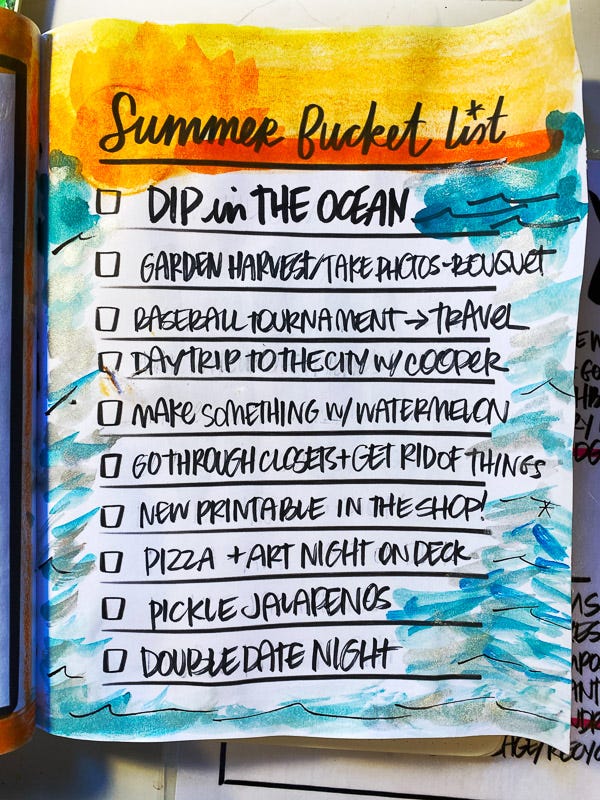 Summer Bucket list
DIP in THE OCEAN
GARDEN HARVEST/TAKE PHOTOS-BOUQUET
BASEBALL TOURNAMENT → TRAVEL
DAYTRIP TO THE CITY W/ COOPER
MAKE SOMETHING W/ WATERMELON
GO THROUGH CLOSETS + GET RID OF THINGS
NEW PRINTABLE IN THE SHOP!
PIZZA + ART NIGHT ON DECK
PICKLE JALAPENOS
DOUBLE DATE NIGHT